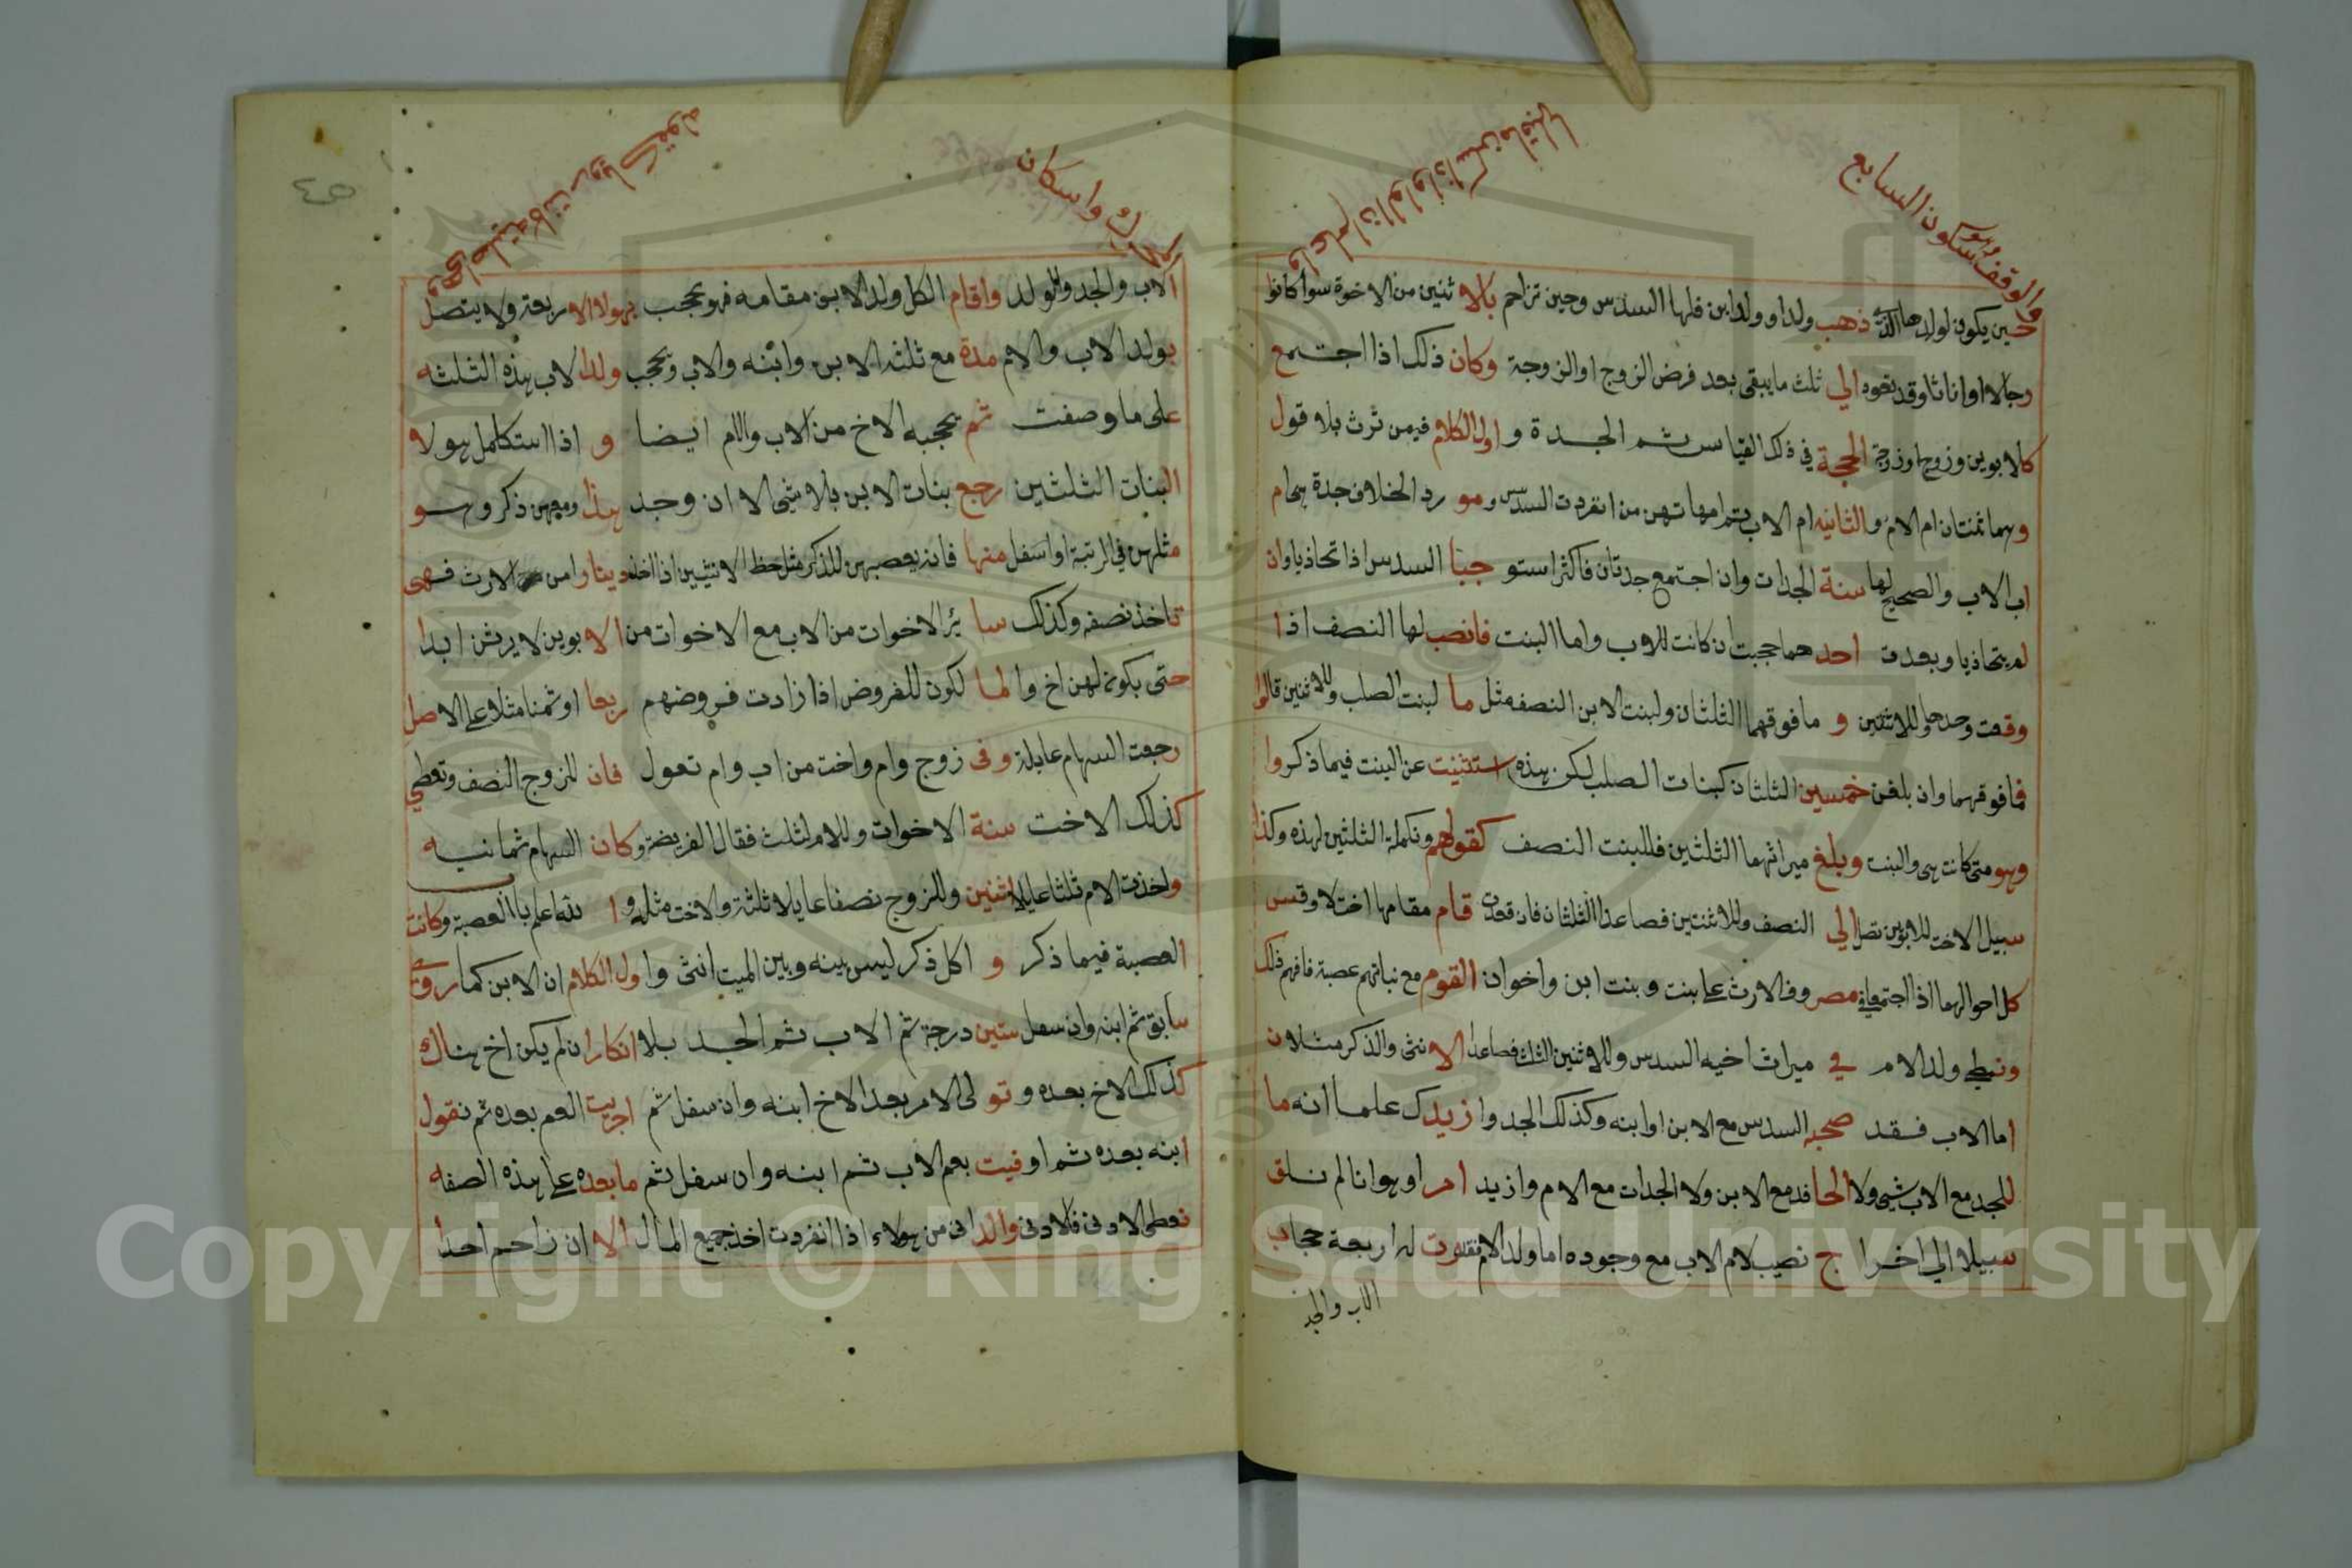 والوقف وهو سكون السابع
واعلم ان الواو اذا سكن ما قبلها
حين يكون لولدها الذي ذهب ولد او ولد ابن فلها السدس وحين تزاحم بالاثنين من الاخوة سوا كانوا
رجالا او اناثا وقد تعود الي ثلث ما يبقى بعد فرض الزوج او الزوجة وكان ذلك اذا اجتمع
كالابوين وزوج او زوجة الحجة في ذلك القياس ثم الجدة واول الكلام فيمن ترث بلا قول
وهما ثمنتان ام الام والثانيه ام الاب ثم امهاتهن من انفردت السدس ومو رد الخلاف جدة هي ام
اب الاب والصحيح لها سنة الجدات وان اجتمع جدتان فاكثر استو جبا السدس اذا تحاذيا وان
لم يتحاذيا وبعدت احدهما حجبت ان كانت للاب واما البنت فانصب لها النصف اذا
وقعت وحدها وللاثنتين و ما فوقهما الثلثان ولبنت الابن النصف مثل ما لبنت الصلب وللاثنين قالوا
فما فوقهما وان بلغن خمسين الثلثان كبنات الصلب لكن هذه استثنيت عن البنت فيما ذكروا
وهو متى كانت هي والبنت وبلغ ميراثهما الثلثين فللبنت النصف كقولهم وتكملة الثلثين لهذه وكذا
سبيل الاخت للابوين تصل الي النصف وللاثنتين فصاعدا الثلثان فان فقدت قام مقامها اخت لا وقس
كل احوالهما اذا اجتمعا في مصر وفى الارث على بنت وبنت ابن واخوان القوم مع بناتهم عصبة فافهم ذلك
وتعطي ولد الام في ميراث اخيه السدس وللاثنين الثلث فصاعدا الانثى والذكر مثلان
اما الاب فقد صحبه السدس مع الابن او ابنه وكذلك الجد وازيدك علما انه ما
للجد مع الاب شي ولا الحافد مع الابن ولا الجدات مع الام وازيد امرا وهو انا لم نلق
سبيلا الي اخراج نصيب لام الاب مع وجوده اما ولد الام فقد رت له اربعة حجاب
الاب والجد
واسكان
الاب والجد والولد واقام الكل ولد الابن مقامه فهو يحجب بهولا الاربعة ولا يتصل
بولد الاب والام مدة مع ثلثه الابن وابنه والاب ويحجب ولد الاب بهذه الثلثه
على ما وصفت ثم يحجبه الاخ من الاب والام ايضا و اذا استكمل هولا
البنات الثلثين رجع بنات الابن بلا شي الا ان وجد هذا ومعهن ذكر وهو
مثلهن في الرتبة او اسفل منها فانه يعصبهن للذكر مثل حظ الانثيين اذا اخذ دينارا من الارث فهي
تاخذ نصفه وكذلك سا ئر الاخوات من الاب مع الاخوات من الابوين لا يرثن ابدا
حتى يكون لهن اخ والما لكون للفروض اذا زادت فروضهم ربعا او ثمنا مثلا على الاصل
رجعت السهام عايلة وفى زوج وام واخت من اب وام تعول فان للزوج النصف وتعطي
كذلك الاخت سنة الاخوات وللام الثلث فقال الفريضة وكان السهام ثمانيه
واخذت الام ثلثا عايلا اثنين وللزوج نصفا عايلا ثلثة والاخت مثله و ا لله اعلم بالعصبة وكانت
العصبة فيما ذكر و ا كل ذكر ليس بينه وبين الميت انثى واول الكلام ان الابن كما روي
سابق ثم ابنه وان سفل ستين درجة ثم الاب ثم الجد بلا انكار ان لم يكن اخ هناك
كذلك الاخ بعده وتو لى الامر بعد الاخ ابنه وان سفل ثم اجريت العم بعده ثم نقول
ابنه بعده ثم اوفيت بعم الاب ثم ابنه وان سفل ثم ما بعده على هذه الصفه
نعطى الادنى فالادنى والدانى من هولاء اذا انفردت اخذ جميع المال الا ان زاحم احدا
Copyright © King Saud University
1957